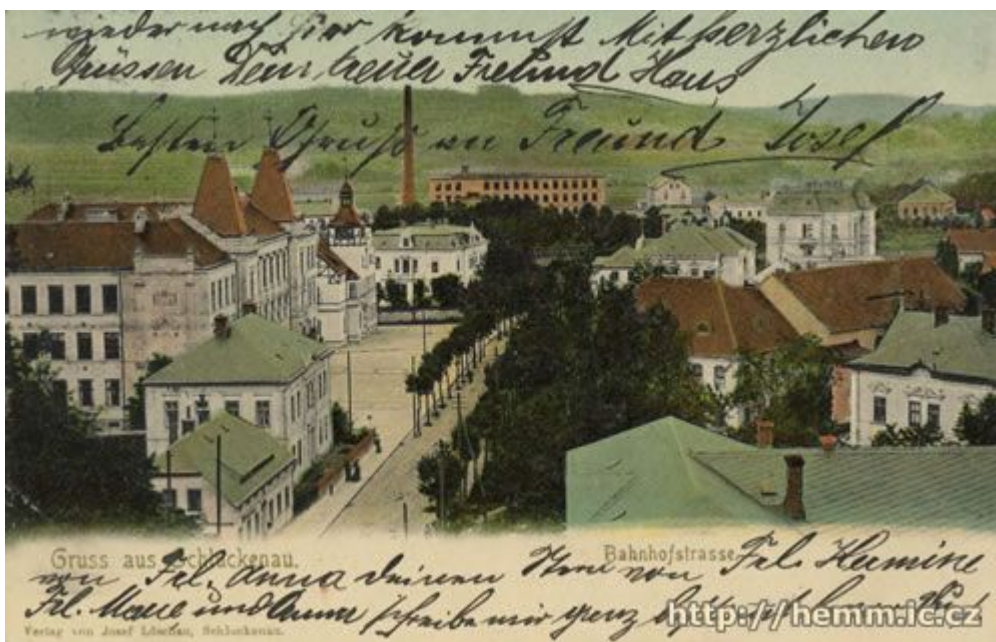 wieder nach hier kommst Mit herzlichen
Grüssen Dein treuer Freund Hans
Besten Gruß an Freund Josef
Gruss aus Schluckenau.
Bahnhofstrasse.
von Frl. Anna deinen von Frl. Hermine
Frl. und Anna schreibe mir ganz
http://hemm.ic.cz
Verlag von Josef Löschau, Schluckenau.